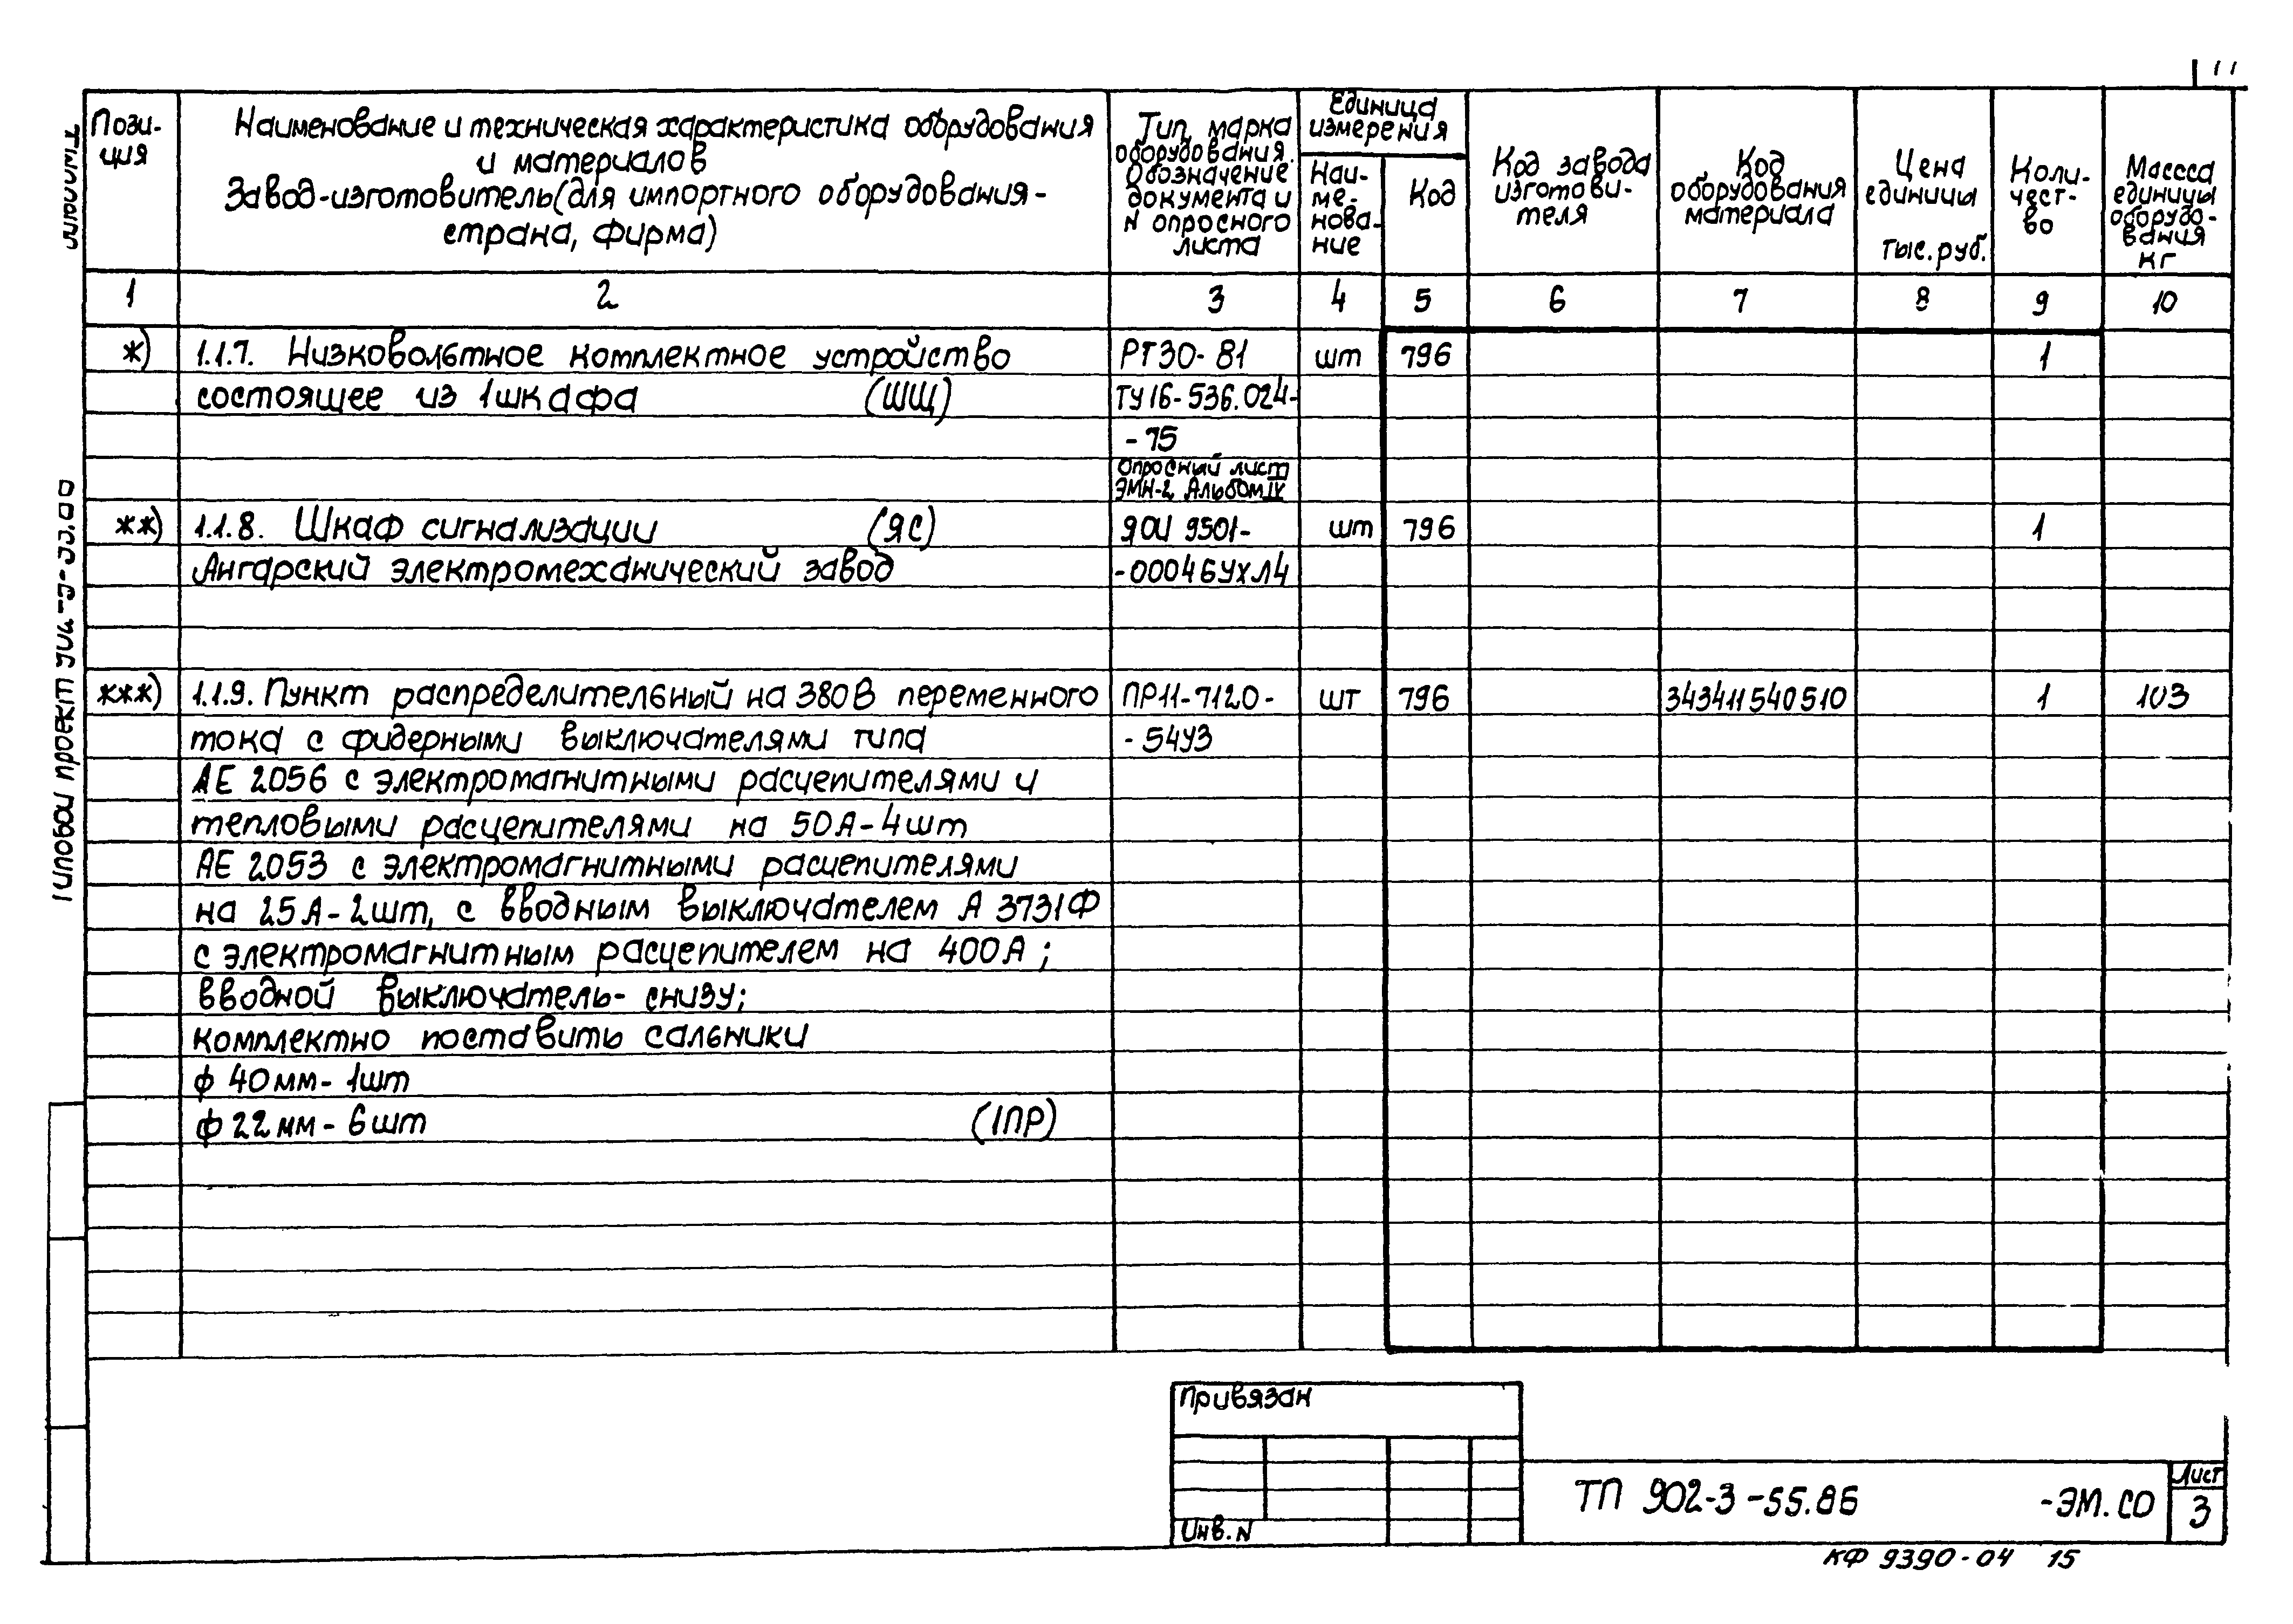 11
Пози-
ция
Наименование и техническая характеристика оборудования
и материалов
Завод-изготовитель (для импортного оборудования-
страна, фирма)
Тип, марка
оборудования.
Обозначение
документа и
N опросного
листа
Единица
измерения
Наи-
ме-
нова-
ние
Код
Код завода
изготови-
теля
Код
оборудования
материала
Цена
единицы
тыс. руб.
Коли-
чест-
во
Массса
единицы
оборудо-
вания
кг
1 2 3 4 5 6 7 8 9 10
*) 1.1.7. Низковольтное комплектное устройство РТ30-81 шт 796 1
состоящее из 1шкафа (ШЩ) ТУ16-536.024-
-75
Опросный лист
ЭМН-2 Альбом IV
**) 1.1.8. Шкаф сигнализации (ЯС) ЯОУ 9501- шт 796 1
Ангарский электромеханический завод -00046УХЛ4
***) 1.1.9. Пункт распределительный на 380В переменного ПР11-7120- шт 796 343411540510 1 103
тока с фидерными выключателями типа -54У3
АЕ 2056 с электромагнитными расцепителями и
тепловыми расцепителями на 50А-4шт
АЕ 2053 с электромагнитными расцепителями
на 25А-2шт, с вводным выключателем А 3731Ф
с электромагнитным расцепителем на 400А;
вводной выключатель- снизу;
комплектно поставить сальники
ф 40мм- 1шт
ф 22мм- 6шт (1ПР)
Привязан
Инв. N
ТП 902-3-55.86 -ЭМ.СО
Лист
3
КФ 9390-04 15